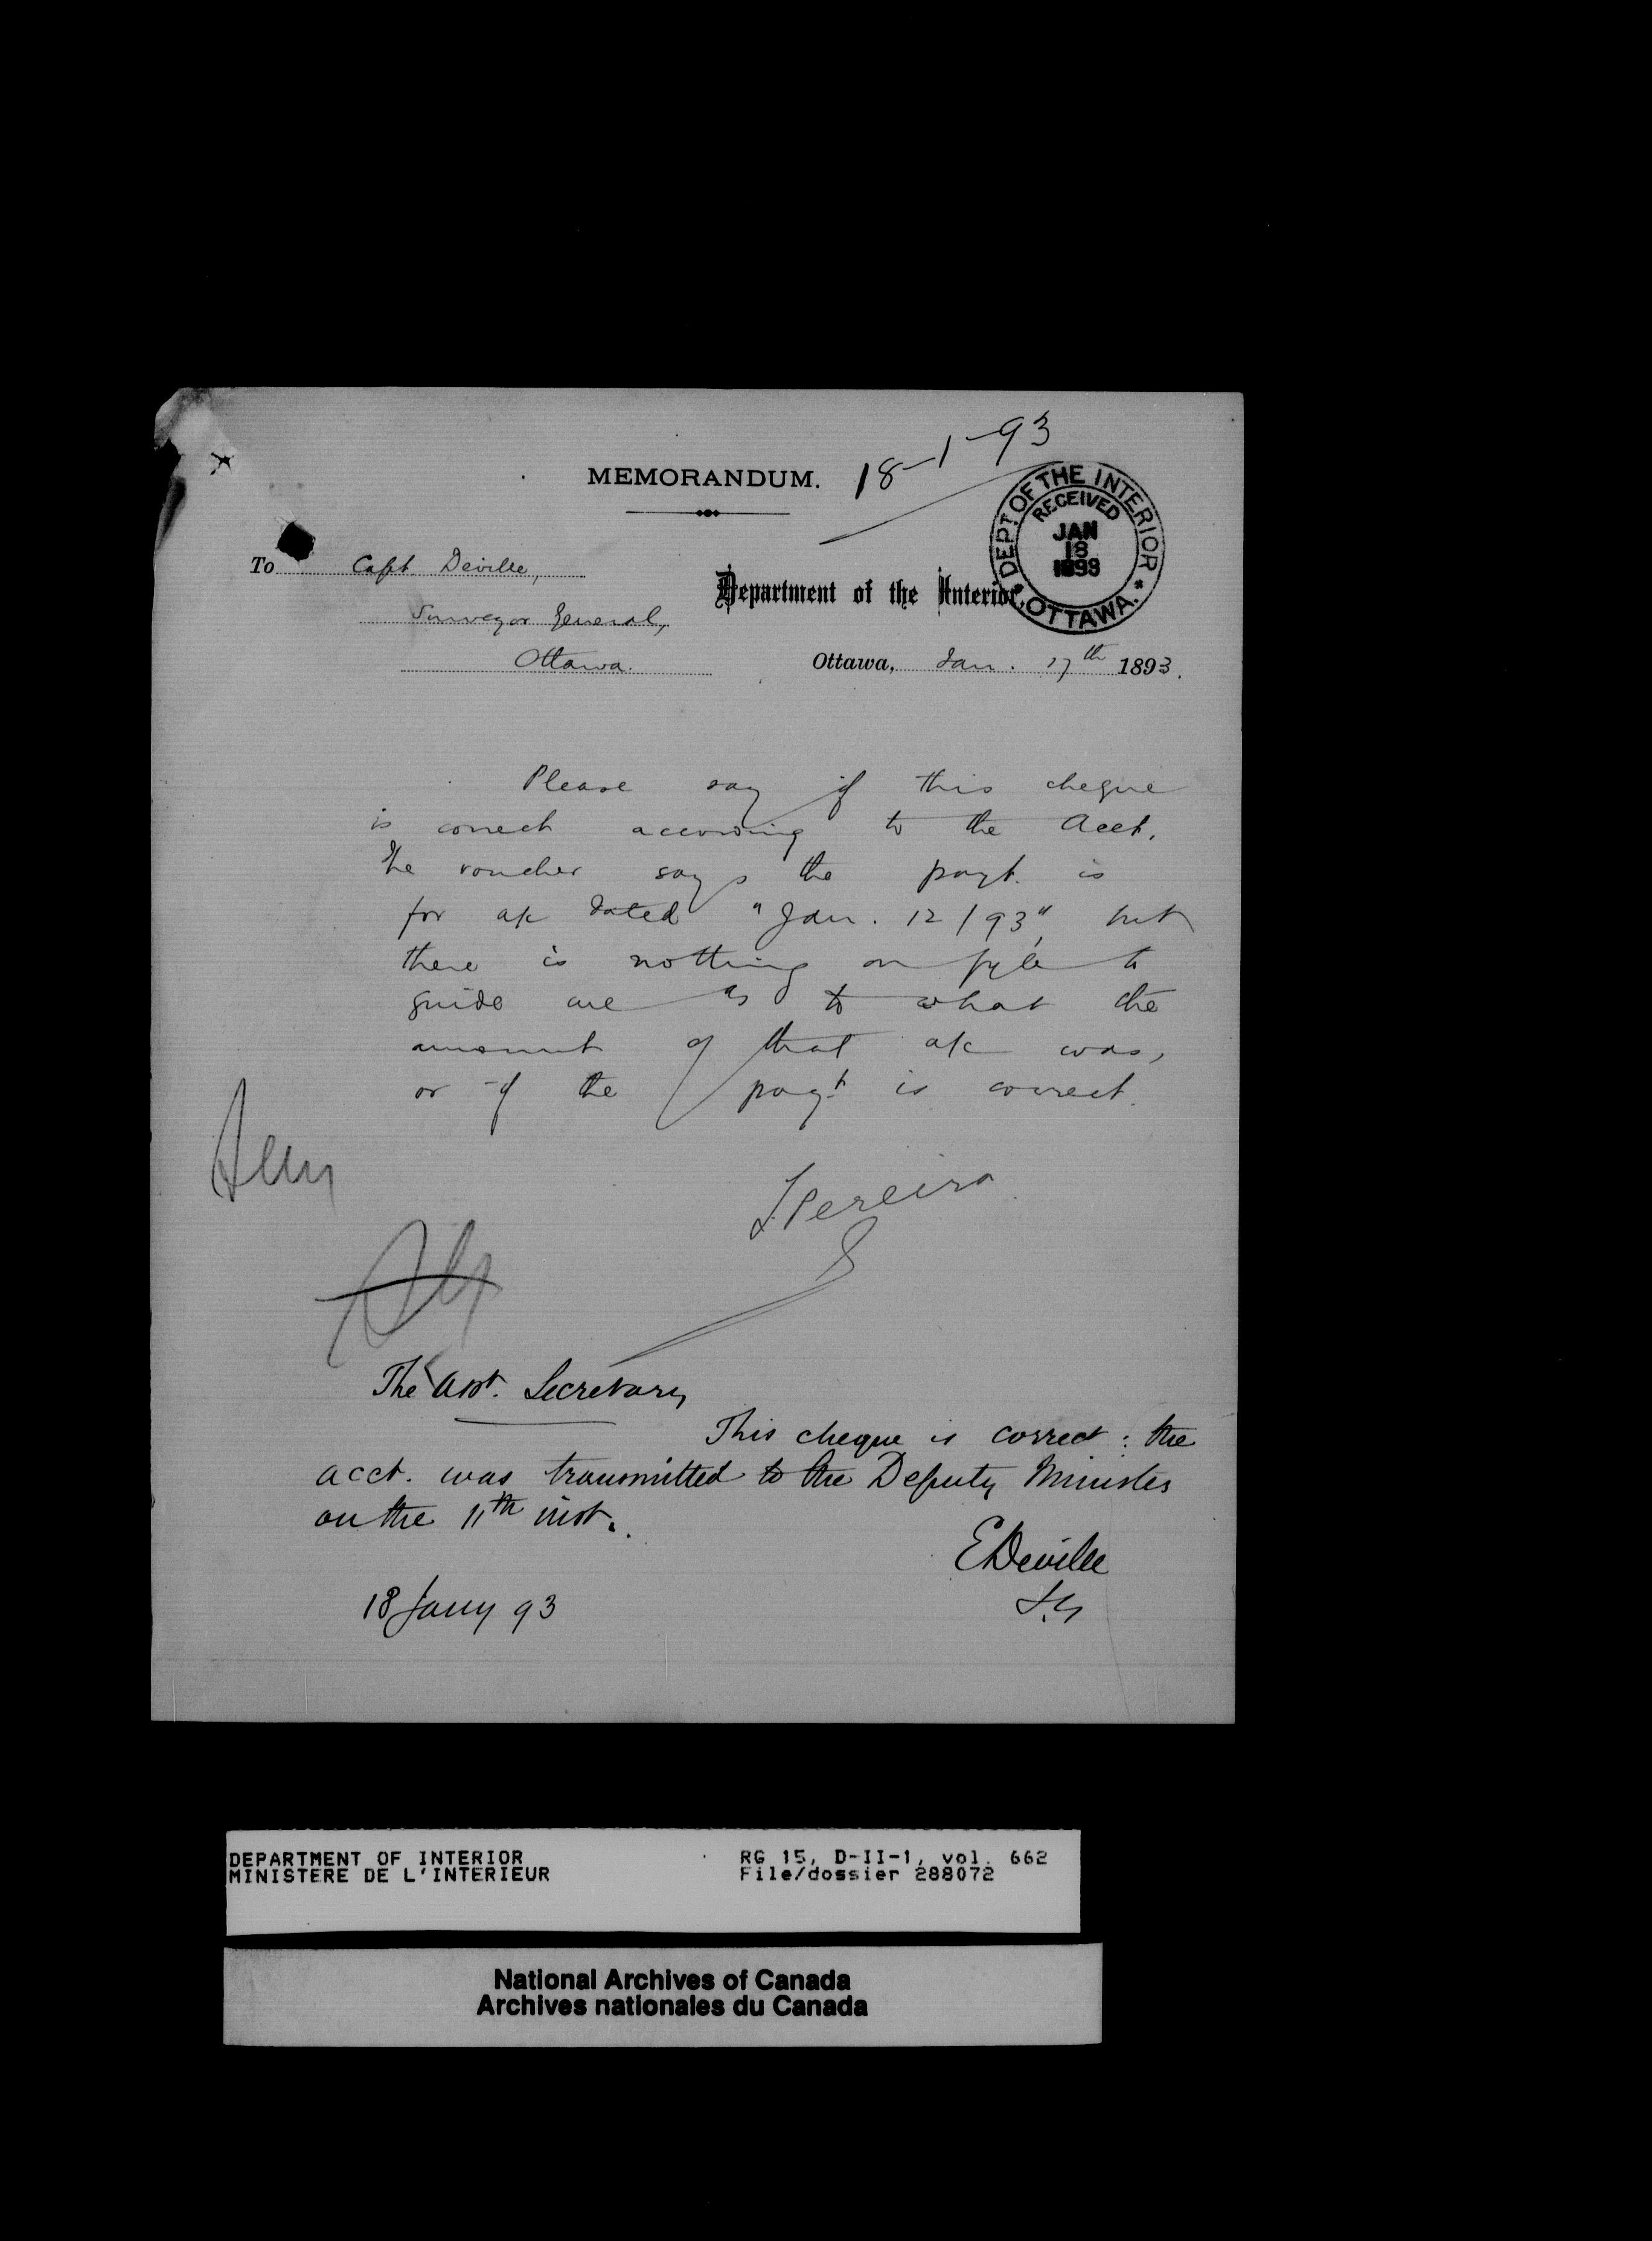 18-1-93
MEMORANDUM.
DEPT OF THE INTERIOR * OTTAWA. *
RECEIVED
JAN
18
1893
To Capt. Deville,
Surveyor General,
Ottawa.
Department of the Interior,
Ottawa, Jan. 17th 1893.
Please say if this cheque
is correct according to the Acct.
The voucher says the payt. is
for a/c dated "Jan. 12/93", but
there is nothing on fyle to
guide me as to what the
amount of that a/c was,
or if the payt. is correct.
LPereira
The Asst. Secretary
This cheque is correct: the
acct. was transmitted to the Deputy Minister
on the 11th inst.
EDeville
S.G
18 Jany 93
DEPARTMENT OF INTERIOR
MINISTERE DE L'INTERIEUR
RG 15, D-II-1, vol. 662
File/dossier 288072
National Archives of Canada
Archives nationales du Canada